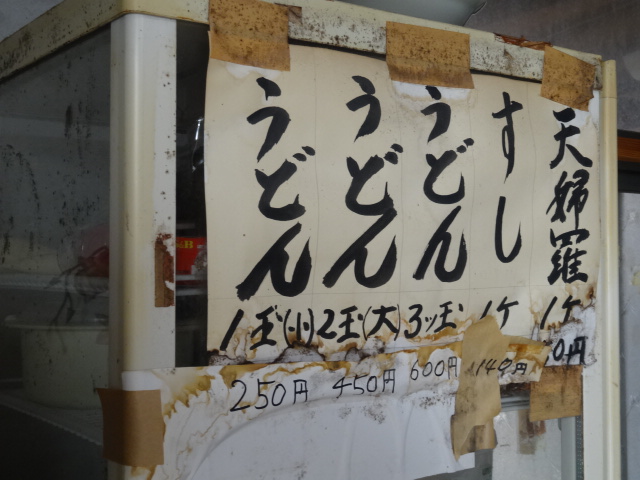 天婦羅
1ケ
0円
すし
1ケ
140円
うどん
3ッ玉
600円
うどん
2玉(大)
450円
うどん
1玉(小)
250円